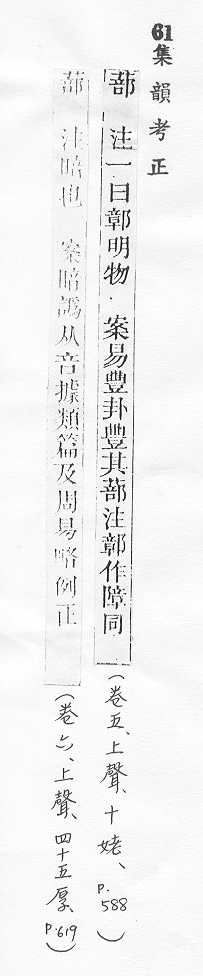 61集韻考正
蔀 注一曰鄣明物 案易豐卦豐其蔀注鄣作障同
(卷五、上聲、十姥、p.588)
蔀 注暗也 案暗譌从音據類篇及周易略例正
(卷六、上聲、四十五厚、p.619)